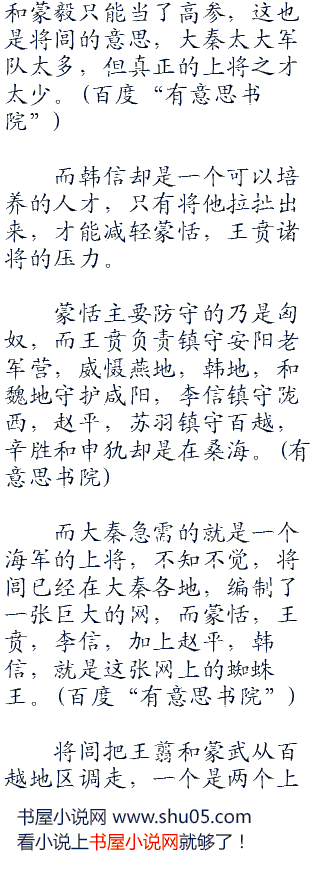 和蒙毅只能当了高参，这也
是将闾的意思，大秦太大军
队太多，但真正的上将之才
太少。(百度“有意思书
院”)
而韩信却是一个可以培
养的人才，只有将他拉扯出
来，才能减轻蒙恬，王贲诸
将的压力。
蒙恬主要防守的乃是匈
奴，而王贲负责镇守安阳老
军营，威慑燕地，韩地，和
魏地守护咸阳，李信镇守陇
西，赵平，苏羽镇守百越，
辛胜和申犰却是在桑海。(有
意思书院)
而大秦急需的就是一个
海军的上将，不知不觉，将
闾已经在大秦各地，编制了
一张巨大的网，而蒙恬，王
贲，李信，加上赵平，韩
信，就是这张网上的蜘蛛
王。(百度“有意思书院”)
将闾把王翦和蒙武从百
越地区调走，一个是两个上
书屋小说网 www.shu05.com
看小说上书屋小说网就够了！